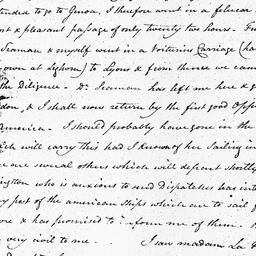 tended to go to Genoa, I therefore went in a felucca
nt & pleasant passage of only twenty two hours. Fr
Seaman & myself went in a voiturins Carriage (ha
own at Leghorn) to Lyons & from thence we cam
the Diligence - Dr Seaman has left me here & g
don, & I shall now return by the first good Oppo
America - I should probably have gone in the
ich will carry this had I known of her Sailing in
re are several others which will depart shortly
ington who is anxious to send Dispatches was in
y part of the american ships which are to sail f
ore & has promised to inform me of them -
very civil to me - I saw madam La